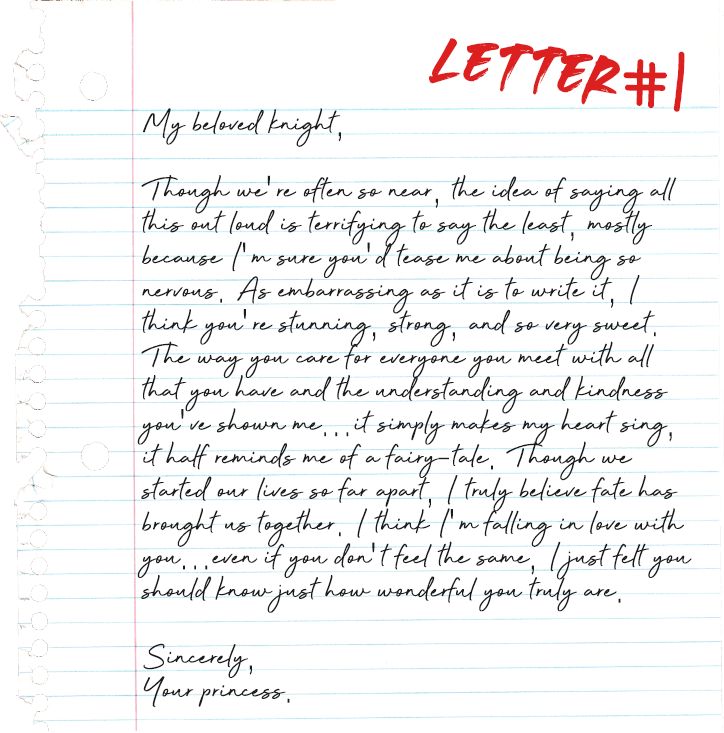 LETTER #1
My beloved knight,
Though we're often so near, the idea of saying all
this out loud is terrifying to say the least, mostly
because I'm sure you'd tease me about being so
nervous. As embarrassing as it is to write it, I
think you're stunning, strong, and so very sweet.
The way you care for everyone you meet with all
that you have and the understanding and kindness
you've shown me...it simply makes my heart sing,
it half reminds me of a fairy-tale. Though we
started our lives so far apart, I truly believe fate has
brought us together. I think I'm falling in love with
you...even if you don't feel the same, I just felt you
should know just how wonderful you truly are.
Sincerely,
Your princess.